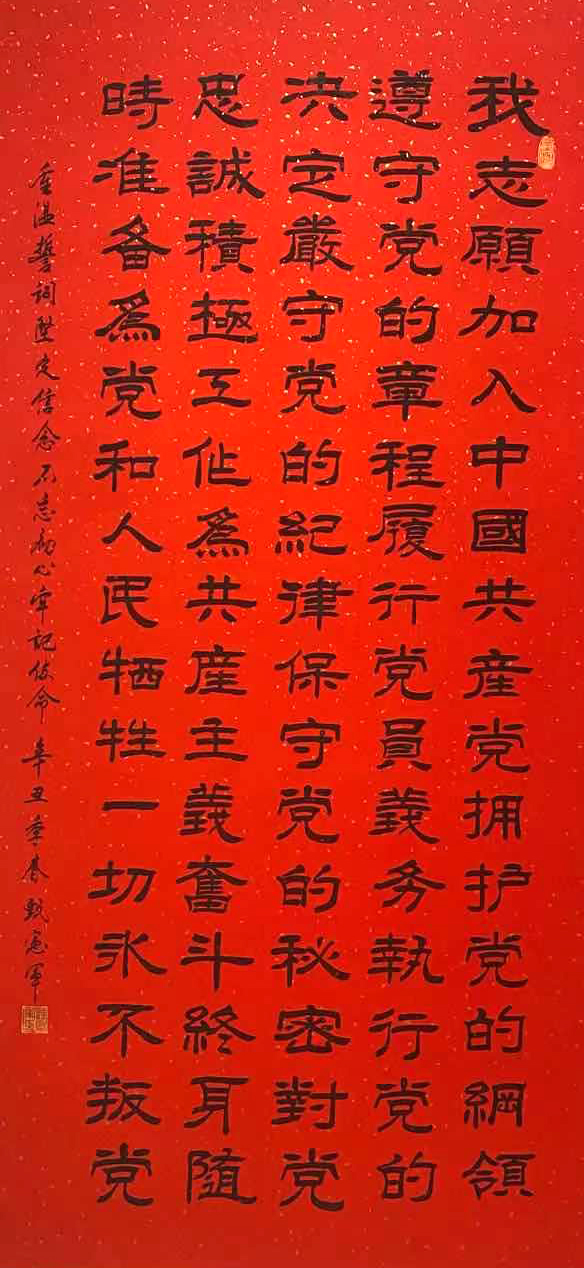 我志願加入中國共産党拥护党的綱領
遵守党的章程履行党員義务執行党的
决定嚴守党的紀律保守党的秘密對党
忠誠積極工作爲共産主義奮斗終身隨
時准备爲党和人民牺牲一切永不叛党
重温誓詞堅定信念不忘初心牢記使命 辛丑季春甄憲軍